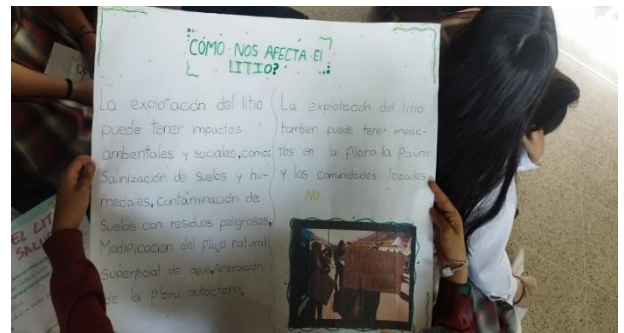 ¿CÓMO NOS AFECTA El
LITIO?
La explotación del litio
puede tener impactos
ambientales y sociales, como:
Salnización de suelos y hu-
medales, contaminación de
Suelos con residuos peligrosos,
Modificación del flujo natural
superficial de agua, Alteración
de la flora autóctona,
La explotación del litio
tambien puede tener impac-
tos en la flora, la fauna
y las comunidades locales
NO
EL LIT